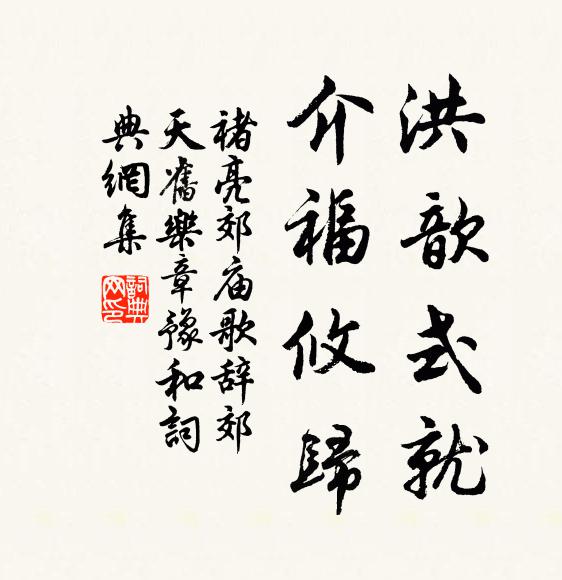 洪歆式就
介福攸歸
褚亮郊庙歌辞郊
天舊樂章豫和詞
典網集
詞典網印